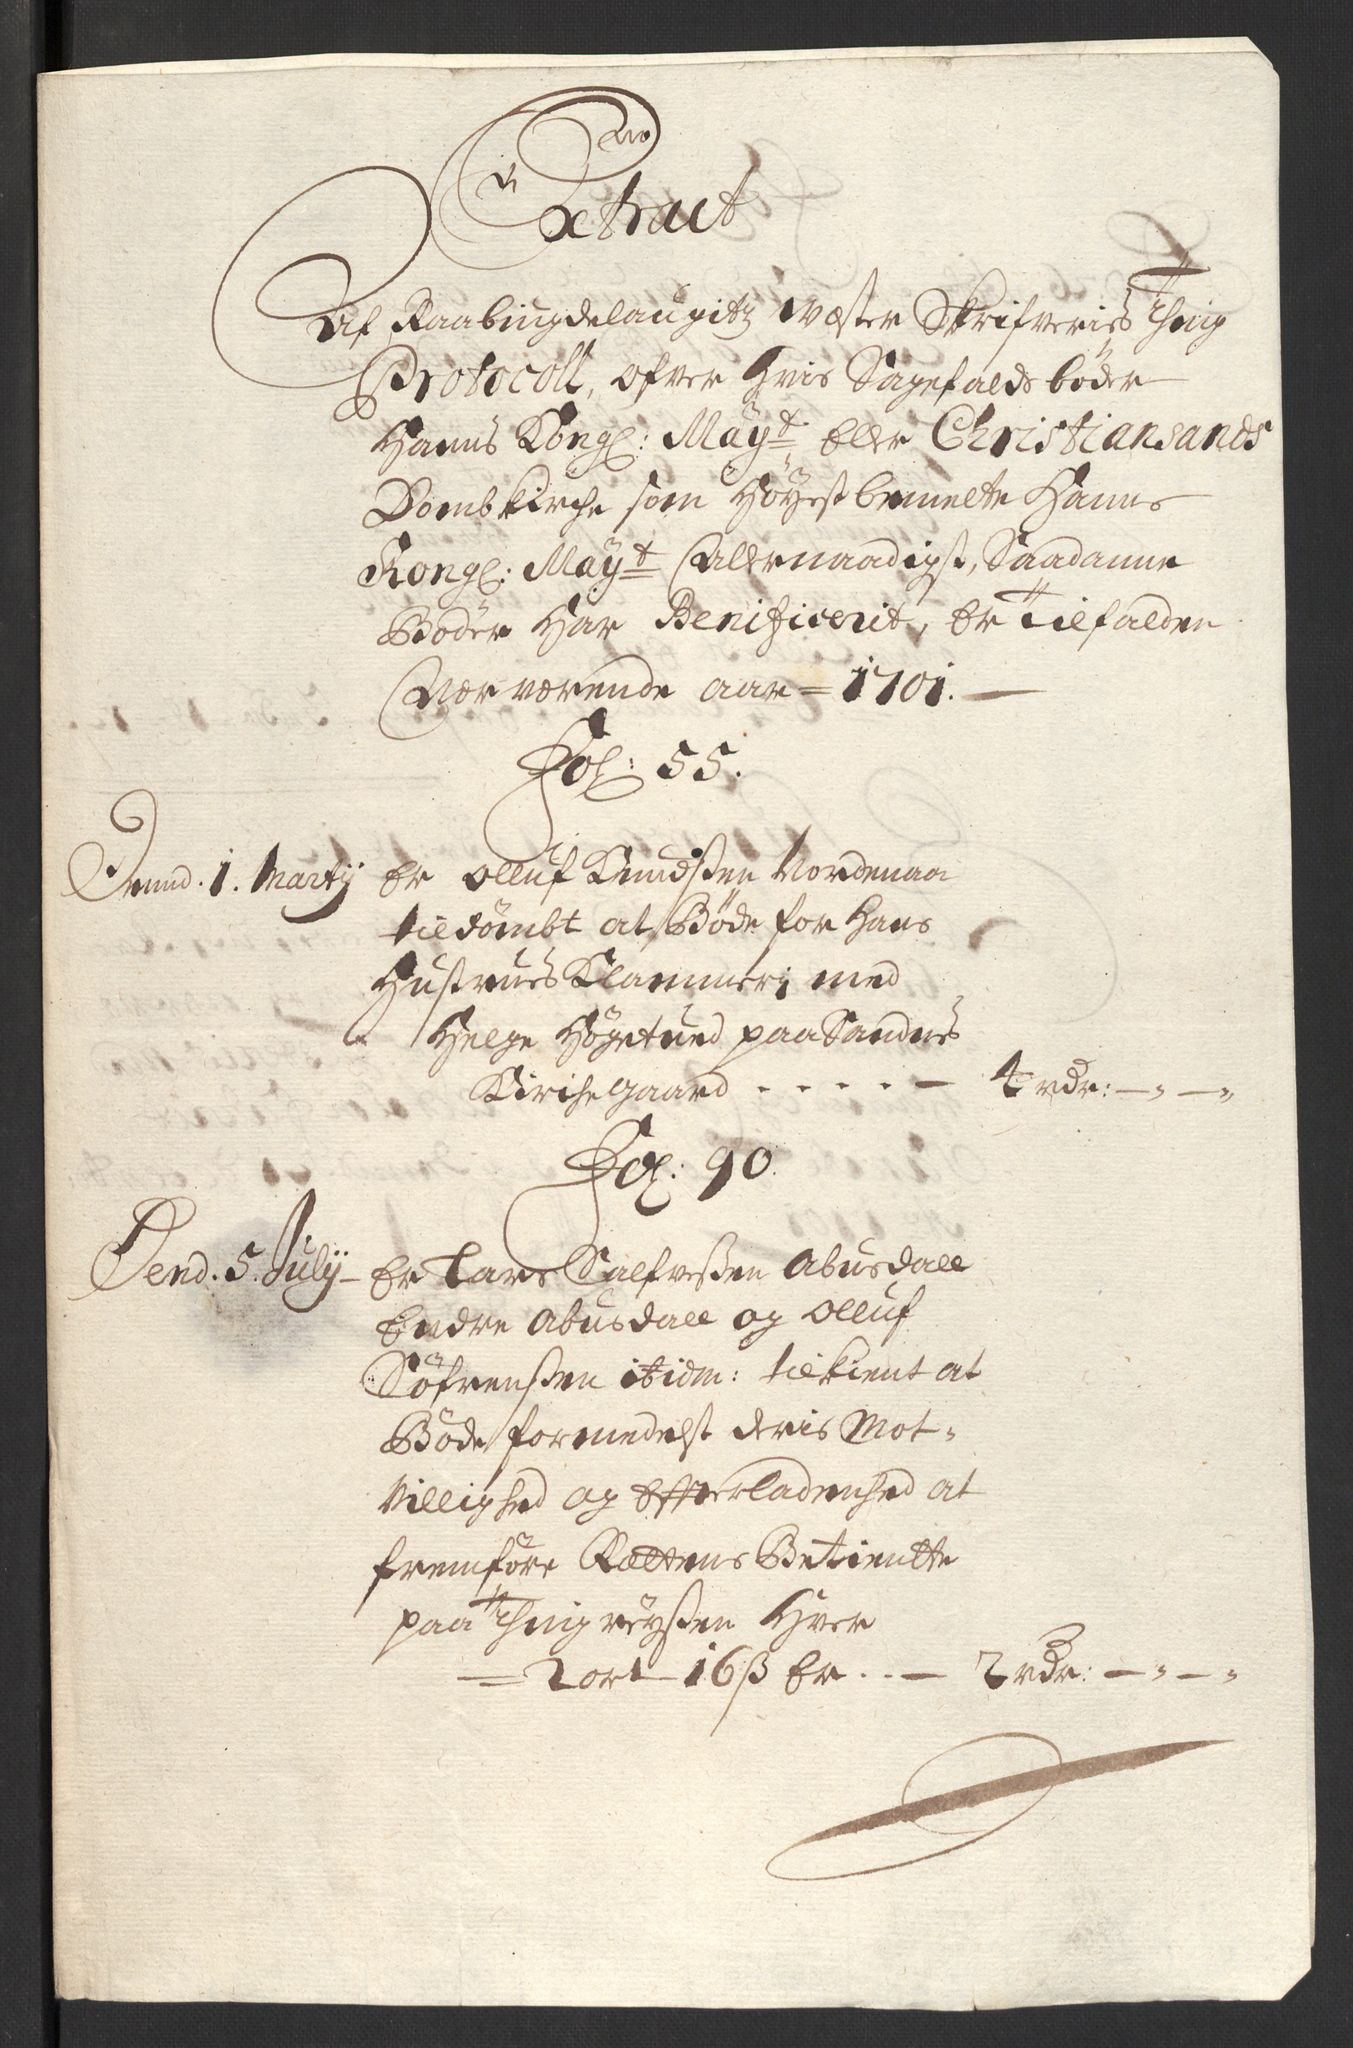 Extract
Af Raabiugdelaugitz Wæster Skrifveries Ting
Protocoll, ofver hvis Sagefalds bøder
Hanns Kongl: Mayt eller Christiansands
Dombkirche som Høyestbemelte Hanns
Kongl: Mayt Allernaadigst, Saadanne
Bøder Har Benificerit, er Tilfalden
Nær værende aar = 1701. —
Fol: 55.
Dend. 1. Marty er Olluf Knudsßen Nordenaa
tildömbt at Bøde for hans
Hustrues Klammeri med
Helge Høgetued paa Sandnes
Kirche gaard . . . . . — 4 rdr: — „ — „
Fol: 90.
Dend. 5. July — er Lars Salfveßen Abusdall
Endre Abusdall og Olluf
Söfrenßen ibidm: tilkient at
Bøde formedelst deris Mot-
villighed og Efterladenhed at
fremføre Rættens Betiente
paa Tingreyßen Hver
= 2 ort 16 ß er . . — 2 rdr: — „ — „